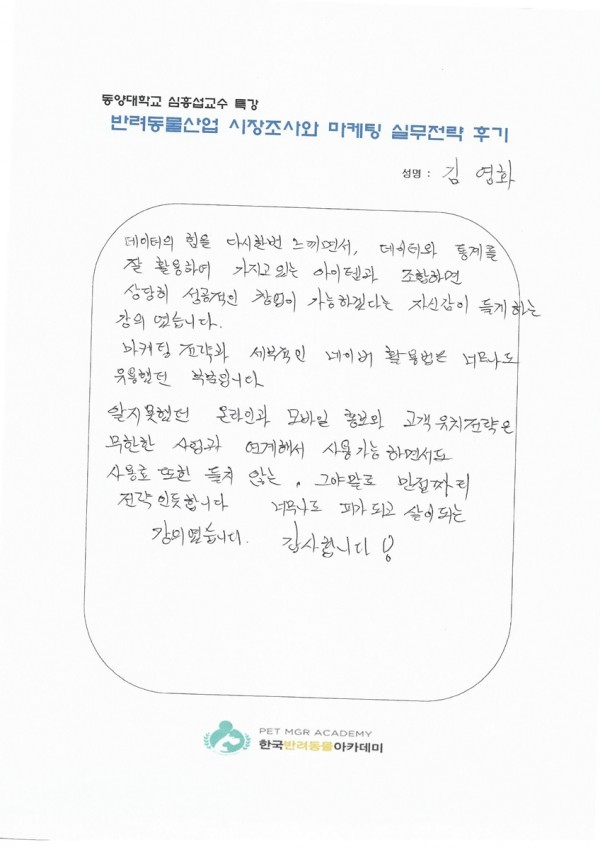 동양대학교 심홍섭교수 특강
반려동물산업 시장조사와 마케팅 실무전략 후기
성명 : 김 영화
데이터의 힘을 다시한번 느끼면서, 데이터와 통계를
잘 활용하며 가지고 있는 아이템과 조합하면
상당히 성공적인 창업이 가능하겠다는 자신감이 들게하는
강의 였습니다.
마케팅 전략과 세부적인 네이버 활용법은 너무나도
유용했던 부분입니다
알지못했던 온라인과 모바일 홍보와 고객유치전략은
무한한 사업과 연계해서 사용가능하면서도
사용료 또한 들지 않는. 그야말로 만점짜리
전략 인듯합니다 너무나도 피가되고 살이되는
강의였습니다. 감사합니다
PET MGR ACADEMY
한국반려동물아카데미